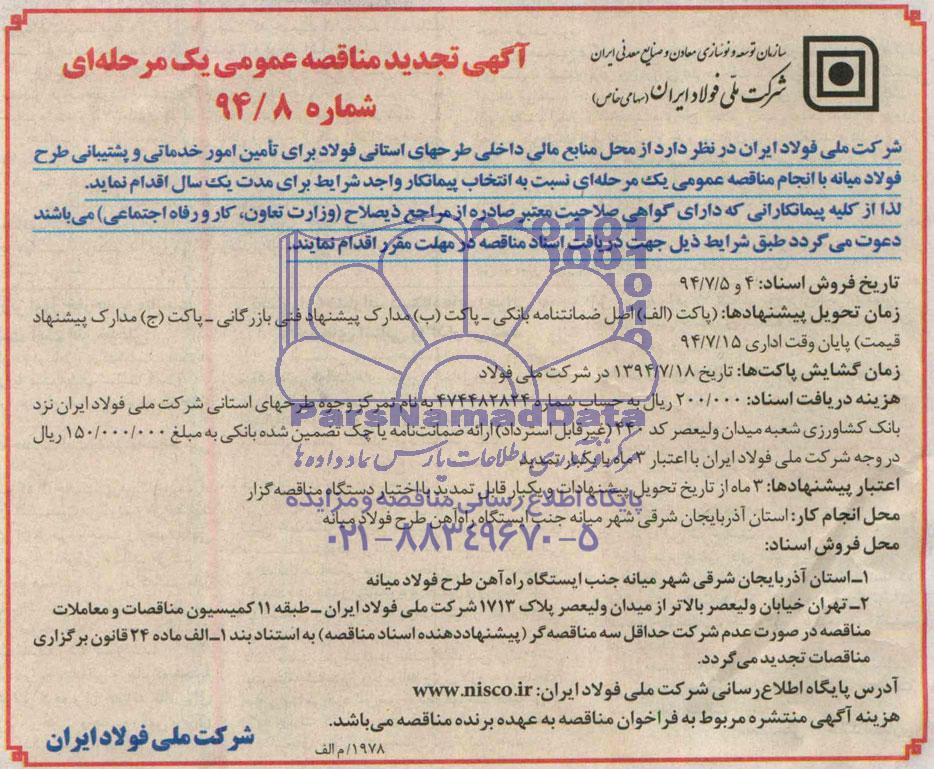 سازمان توسعه و نوسازی معادن و صنایع معدنی ایران
شرکت ملی فولاد ایران (سهامی خاص)
آگهی تجدید مناقصه عمومی یک مرحله‌ای
شماره ۹۴/۸
شرکت ملی فولاد ایران در نظر دارد از محل منابع مالی داخلی طرحهای استانی فولاد برای تأمین امور خدماتی و پشتیبانی طرح
فولاد میانه با انجام مناقصه عمومی یک مرحله‌ای نسبت به انتخاب پیمانکار واجد شرایط برای مدت یک سال اقدام نماید.
لذا از کلیه پیمانکارانی که دارای گواهی صلاحیت معتبر صادره از مراجع ذیصلاح (وزارت تعاون، کار و رفاه اجتماعی) می‌باشند
دعوت می‌گردد طبق شرایط ذیل جهت دریافت اسناد مناقصه در مهلت مقرر اقدام نمایند.
تاریخ فروش اسناد: ۴ و ۹۴/۷/۵
زمان تحویل پیشنهادها: (پاکت (الف) اصل ضمانتنامه بانکی ـ پاکت (ب) مدارک پیشنهاد فنی بازرگانی ـ پاکت (ج) مدارک پیشنهاد
قیمت) پایان وقت اداری ۹۴/۷/۱۵
زمان گشایش پاکت‌ها: تاریخ ۱۳۹۴/۷/۱۸ در شرکت ملی فولاد
هزینه دریافت اسناد: ۲۰۰/۰۰۰ ریال به حساب شماره ۴۷۴۴۸۲۸۲۴ به نام تمرکز وجوه طرحهای استانی شرکت ملی فولاد ایران نزد
بانک کشاورزی شعبه میدان ولیعصر کد (غیر قابل استرداد) ارائه ضمانت‌نامه یا چک تضمین شده بانکی به مبلغ ۱۵۰/۰۰۰/۰۰۰ ریال
در وجه شرکت ملی فولاد ایران با اعتبار ۳ ماه با یکبار تمدید
اعتبار پیشنهادها: ۳ ماه از تاریخ تحویل پیشنهادات و یکبار قابل تمدید با اختیار دستگاه مناقصه‌گزار
محل انجام کار: استان آذربایجان شرقی شهر میانه جنب ایستگاه راه‌آهن طرح فولاد میانه
محل فروش اسناد:
۱ـ استان آذربایجان شرقی شهر میانه جنب ایستگاه راه آهن طرح فولاد میانه
۲ـ تهران خیابان ولیعصر بالاتر از میدان ولیعصر پلاک ۱۷۱۳ شرکت ملی فولاد ایران ـ طبقه ۱۱ کمیسیون مناقصات و معاملات
مناقصه در صورت عدم شرکت حداقل سه مناقصه‌گر (پیشنهاددهنده اسناد مناقصه) به استناد بند ۱ـ الف ماده ۲۴ قانون برگزاری
مناقصات تجدید می‌گردد.
آدرس پایگاه اطلاع رسانی شرکت ملی فولاد ایران: www.nisco.ir
هزینه آگهی منتشره مربوط به فراخوان مناقصه به عهده برنده مناقصه می‌باشد.
۱۹۷۸/م الف
شرکت ملی فولاد ایران
ParsNamadData
مرکز فرآوری اطلاعات پارس نماد داده‌ها
پایگاه اطلاع رسانی مناقصه و مزایده
۰۲۱-۸۸۳۴۹۶۷۰-۵